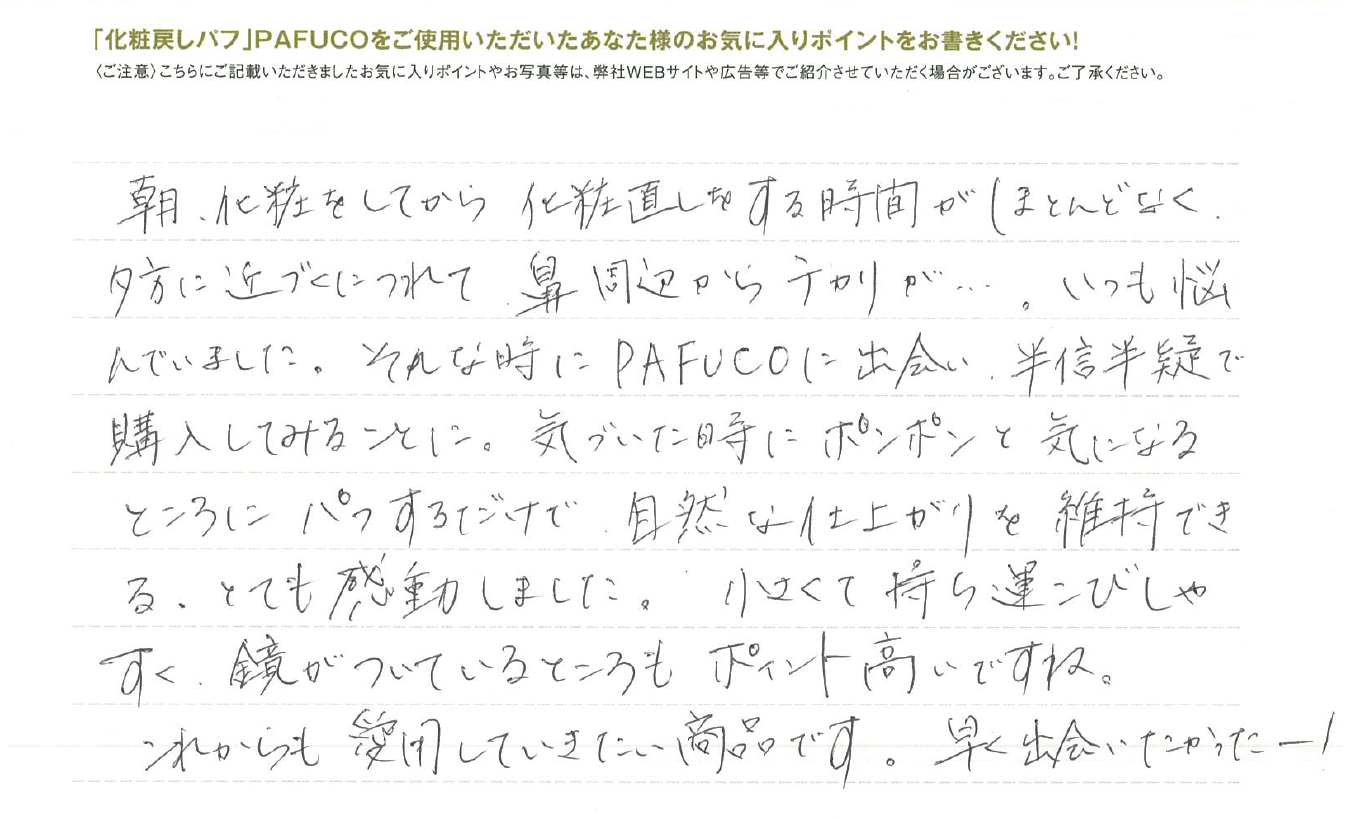 「化粧戻しパフ」PAFUCOをご使用いただいたあなた様のお気に入りポイントをお書きください!
〈ご注意〉こちらにご記載いただきましたお気に入りポイントやお写真等は、弊社WEBサイトや広告等でご紹介させていただく場合がございます。ご了承ください。
朝、化粧をしてから 化粧直しをする時間がほとんどなく、
夕方に近づくにつれて、鼻周辺からテカリが…。いつも悩
んでいました。それな時にPAFUCOに出会い、半信半疑で
購入してみることに。気づいた時にポンポンと気になる
ところにパフするだけで、自然な仕上がりを維持でき
る、とても感動しました。小さくて持ち運こびしや
すく、鏡がついているところもポイント高いですね。
これからも愛用していきたい商品です。早く出会いたかったー!